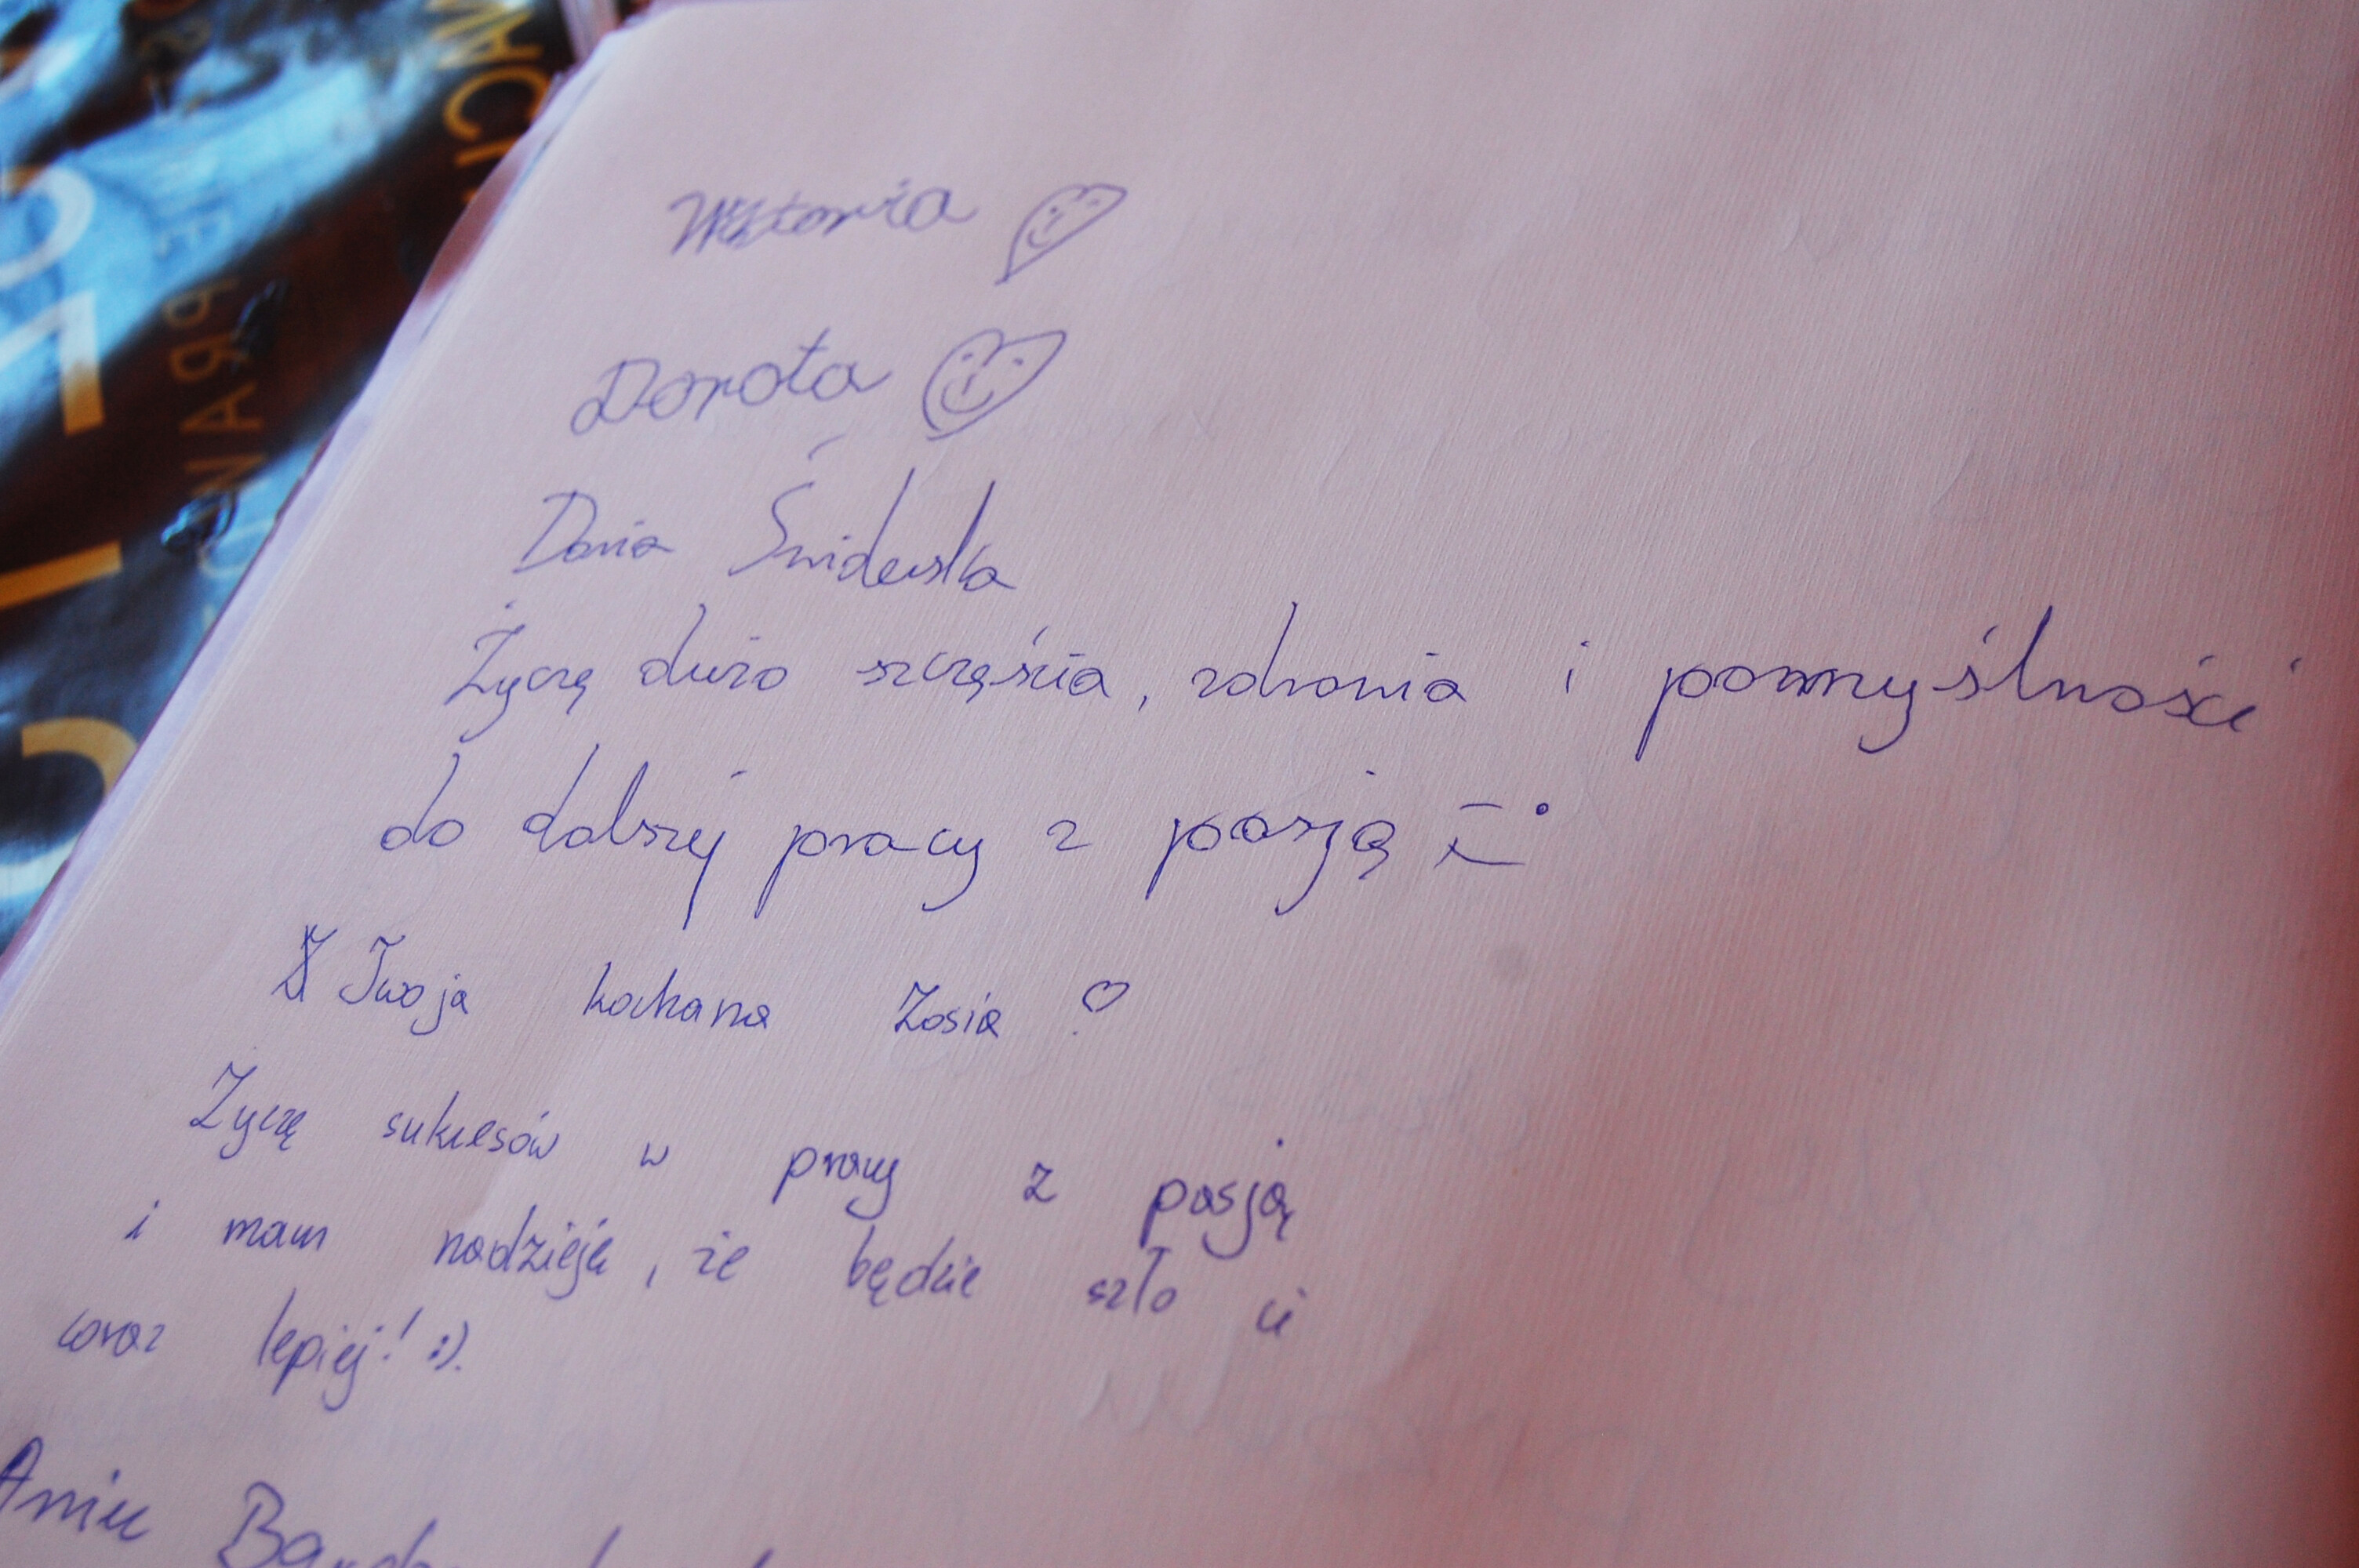 Wiktoria
Dorota
Daria Świderska
Życzę dużo szczęścia, zdrowia i pommyślności
do dalszej pracy z pasją
Twoja kochana Zosia ♡
Życzę sukcesów w pracy z pasją
i mam nadzieję, że będzie szło ci
coraz lepiej! :).